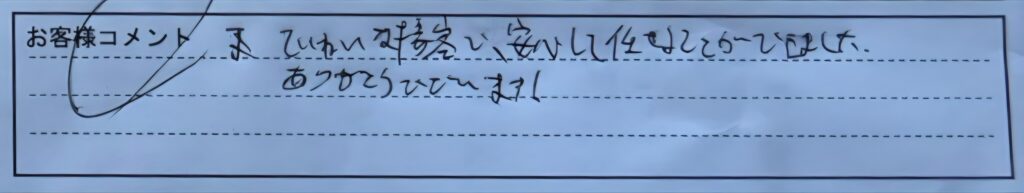 お客様コメント ていねいな接客で、安心して任せることができました。
ありがとうございます!